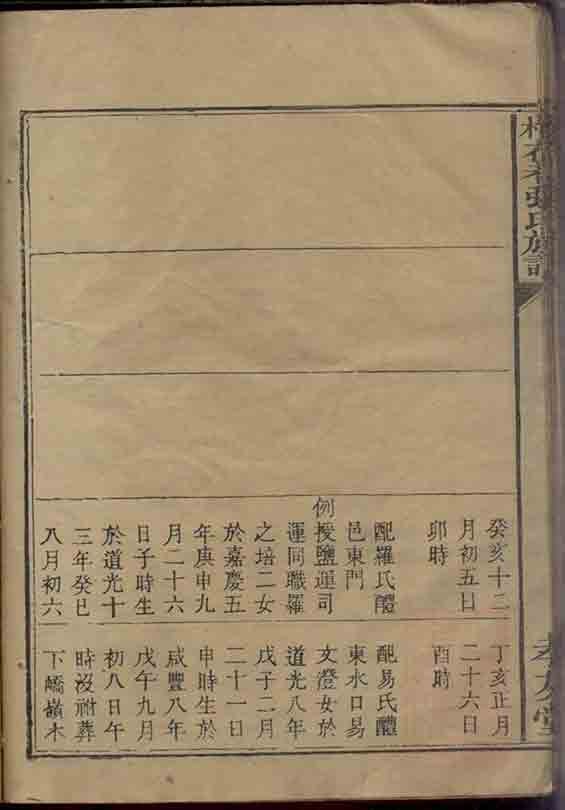 張氏族譜
孝友堂
癸亥十二
月初五日
卯時
配羅氏醴
邑東門
例授鹽運司
運同職羅
之培二女
於嘉慶五
年庚申九
月二十六
日子時生
於道光十
三年癸巳
八月初六
丁亥正月
二十六日
酉時
配易氏醴
東水口易
文澄女於
道光八年
戊子二月
二十一日
申時生於
咸豐八年
戊午九月
初八日午
時沒祔葬
下嶠嶺木